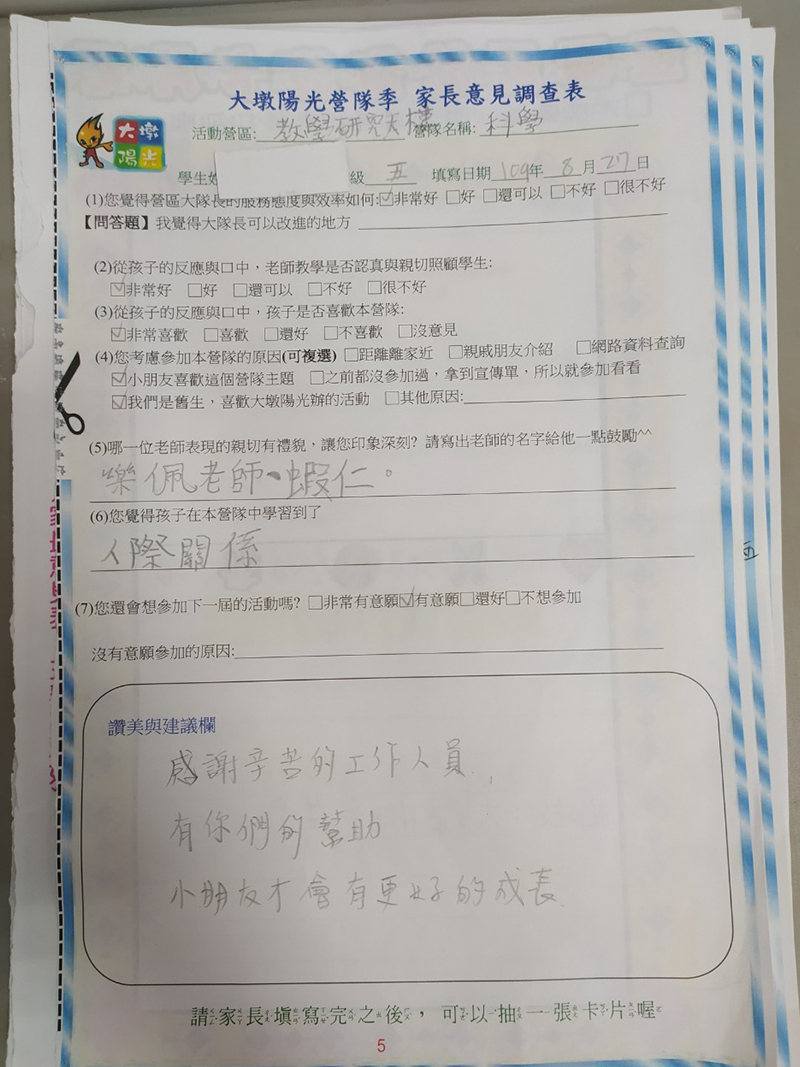 大墩陽光營隊季 家長意見調查表
大墩
陽光
活動營區: 教學研究大樓 營隊名稱: 科學
學生姓 級 五 填寫日期 109年 8月27日
(1)您覺得營區大隊長的服務態度與效率如何:☑非常好 □好 □還可以 □不好 □很不好
【問答題】我覺得大隊長可以改進的地方
(2)從孩子的反應與口中，老師教學是否認真與親切照顧學生:
☑非常好 □好 □還可以 □不好 □很不好
(3)從孩子的反應與口中，孩子是否喜歡本營隊:
☑非常喜歡 □喜歡 □還好 □不喜歡 □沒意見
(4)您考慮參加本營隊的原因(可複選) □距離離家近 □親戚朋友介紹 □網路資料查詢
☑小朋友喜歡這個營隊主題 □之前都沒參加過，拿到宣傳單，所以就參加看看
☑我們是舊生，喜歡大墩陽光辦的活動 □其他原因:
(5)哪一位老師表現的親切有禮貌，讓您印象深刻? 請寫出老師的名字給他一點鼓勵^^
樂佩老師、蝦仁。
(6)您覺得孩子在本營隊中學習到了
人際關係
(7)您還會想參加下一屆的活動嗎? □非常有意願☑有意願□還好□不想參加
沒有意願參加的原因:
讚美與建議欄
感謝辛苦的工作人員,
有你們的幫助
小朋友才會有更好的成長
請家長填寫完之後，可以抽一張卡片喔
5
五